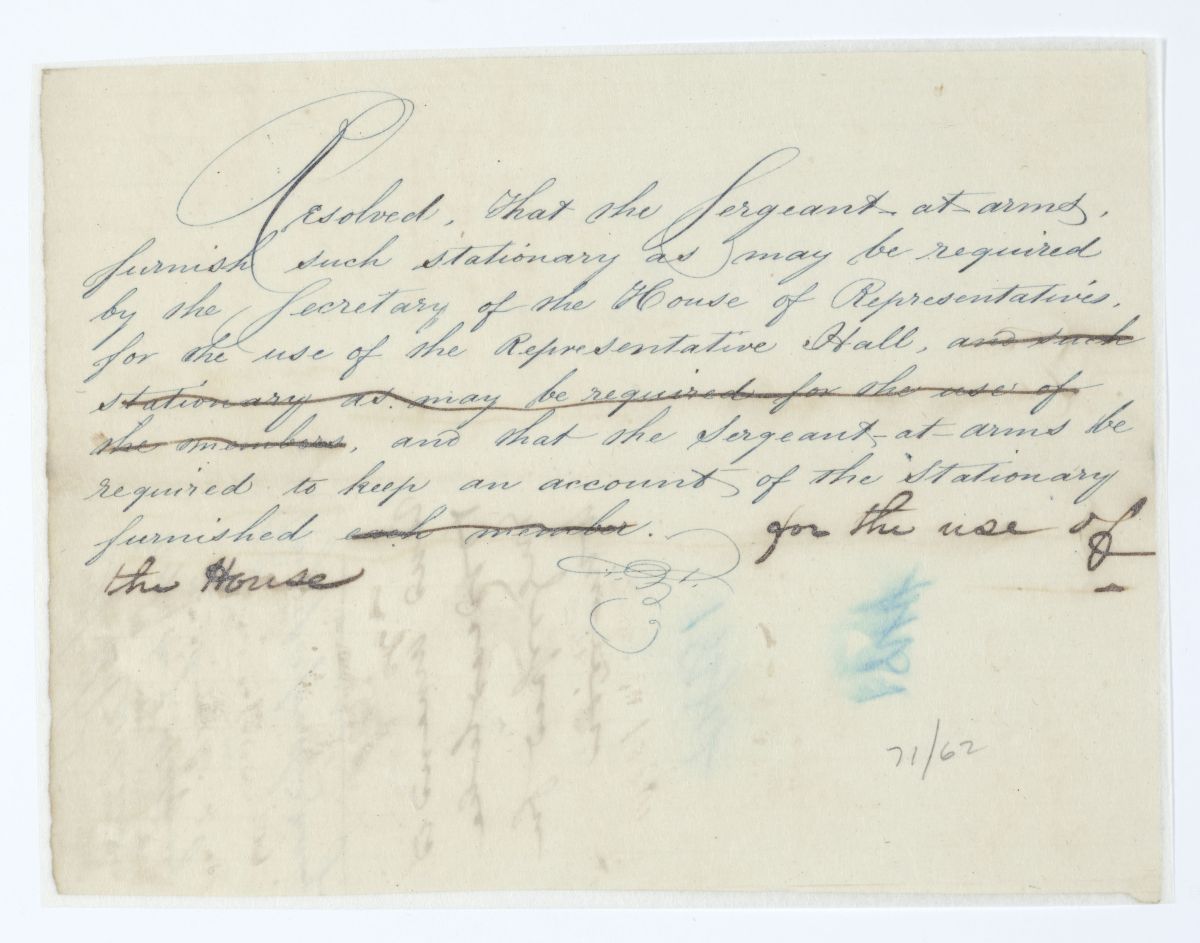 Resolved, That the Sergeant-at-arms,
furnish such stationary as may be required
by the Secretary of the House of Representatives,
for the use of the Representative Hall, and such
stationary as may be required for the use of
the members, and that the Sergeant-at-arms be
required to keep an account of the Stationary
furnished each member. for the use of
the House
71/62